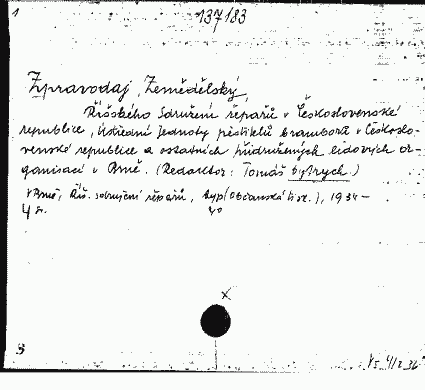 1
137/83
Zpravodaj, Zemědělský,
Říšského Sdružení řepařů v Československé
republice, Ústřední Jednoty pěstitelů bramborů v Českoslo-
venské republice a ostatních přidružených lidových or-
ganisací v Brně. (Redaktor: Tomáš Bystrých.)
V Brně, Říš. sdružení řepařů, typ (Občanská tisk.), 1934 –
4°